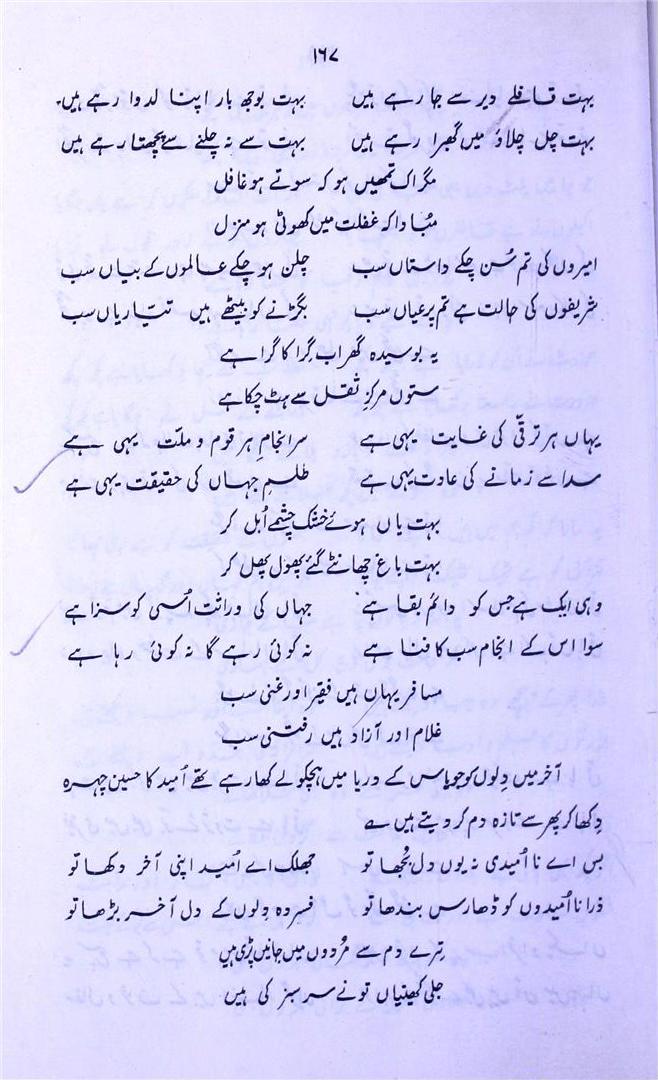 ۱۶۷
بہت قافلے دیر سے جا رہے ہیں بہت بوجھ بار اپنا لدوا رہے ہیں۔
بہت چل چلاؤ میں گھبرا رہے ہیں بہت سے نہ چلنے سے پچھتا رہے ہیں
مگر اک تمھیں ہو کہ سوتے ہو غافل
مُبادا کہ غفلت میں کھوٹی ہو منزل
امیروں کی تم سُن چکے داستاں سب چلن ہو چکے عالموں کے بیاں سب
شریفوں کی حالت ہے تم پر عیاں سب بگڑنے کو بیٹھے ہیں تیّاریاں سب
یہ بوسیدہ گھر اب گرا کا گرا ہے
ستوں مرکزِ ثقل سے ہٹ چکا ہے
یہاں ہر ترقّی کی غایت یہی ہے سر انجامِ ہر قوم و ملّت یہی ہے
سدا سے زمانے کی عادت یہی ہے طلسم جہاں کی حقیقت یہی ہے
بہت یاں ہوئے خشک چشمے اُبل کر
بہت باغ چھانٹے گئے پھول پھل کر
وہی ایک ہے جس کو دائم بقا ہے جہاں کی وراثت اُسی کو سزا ہے
سوا اس کے انجام سب کا فنا ہے نہ کوئی رہے گا نہ کوئی رہا ہے
مسافر یہاں ہیں فقیر اور غنی سب
غلام اور آزاد ہیں رفتنی سب
آخر میں دِلوں کو جو یاس کے دریا میں ہچکولے کھا رہے تھے اُمید کا حسین چہرہ
دِکھا کر پھر سے تازہ دم کر دیتے ہیں ؎
بس اے نا اُمیدی نہ یوں دل بُجھا تو جھلک اے اُمید اپنی آخر دکھا تو
ذرا نا اُمیدوں کو ڈھارس بندھا تو فسردہ دِلوں کے دل آخر بڑھا تو
تِرے دم سے مُردوں میں جانیں پڑی ہیں
جلی کھیتیاں تو نے سر سبز کی ہیں